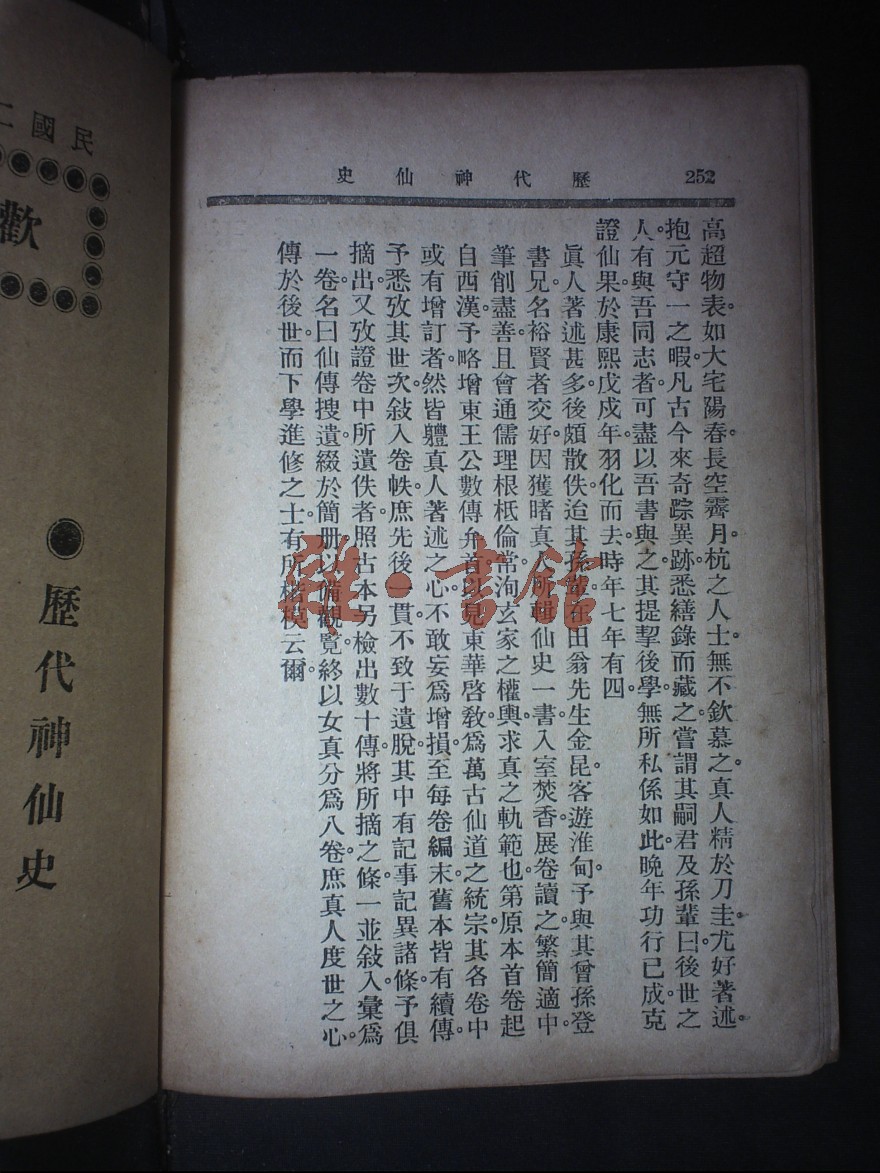 252
歷代神仙史
高超物表。如大宅陽春。長空霽月。杭之人士。無不欽慕之。真人精於刀圭。尤好著述。
抱元守一之暇。凡古今來奇踪異跡。悉繕錄而藏之。嘗謂其嗣君及孫輩曰。後世之
人。有與吾同志者。可盡以吾書與之。其提挈後學。無所私係如此。晚年功行已成。克
證仙果。於康熙戊戌年。羽化而去。時年七年有四
眞人著述甚多。後頗散佚。迨其孫輩在田翁先生金昆。客遊淮甸。予與其曾孫登
書兄名裕賢者交好。因獲睹真人所輯仙史一書。入室焚香。展卷讀之。繁簡適中。
筆削盡善。且會通儒理。根柢倫常。洵玄家之權輿。求真之軌範也。第原本首卷起
自西漢。予略增東王公數傳弁首。以見東華啓敎。爲萬古仙道之統宗。其各卷中
或有增訂者。然皆軆真人著述之心。不敢妄爲增損。至每卷編末。舊本皆有續傳。
予悉攷其世次。敍入卷帙。庶先後一貫。不致于遺脫。其中有記事記異諸條。予俱
摘出。又攷證卷中所遺佚者。照古本另檢出數十傳。將所摘之條。一並敍入。彙爲
一卷。名曰仙傳搜遺。綴於簡册。以備觀覧。終以女真。分爲八卷。庶真人度世之心。
傳於後世。而下學進修之士。有所楷模云爾。
民國二
歡
歷代神仙史
雅·書館